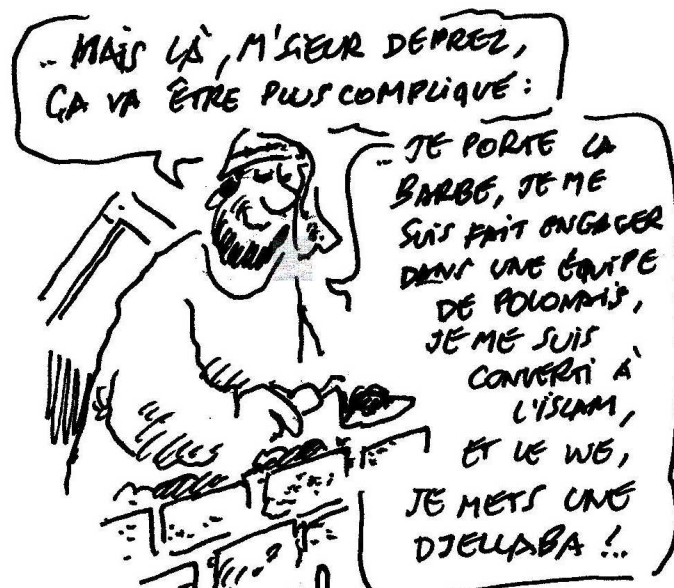 .. MAIS LÀ, M'SIEUR DEPREZ,
ÇA VA ÊTRE PLUS COMPLIQUÉ :
.. JE PORTE LA
BARBE, JE ME
SUIS FAIT ENGAGER
DANS UNE ÉQUIPE
DE POLONAIS,
JE ME SUIS
CONVERTI À
L'ISLAM,
ET LE WE,
JE METS UNE
DJELLABA !..